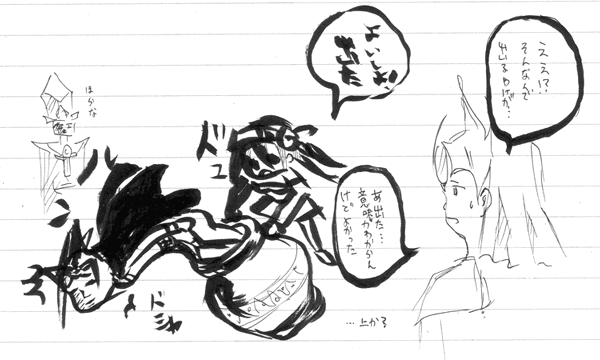 ええ!?
そんなんで
出いるわけが…
よいしょ、
出た
あ出た…
意味がわからん
けどよかった
ドュ
ル
ドシャ
…上から